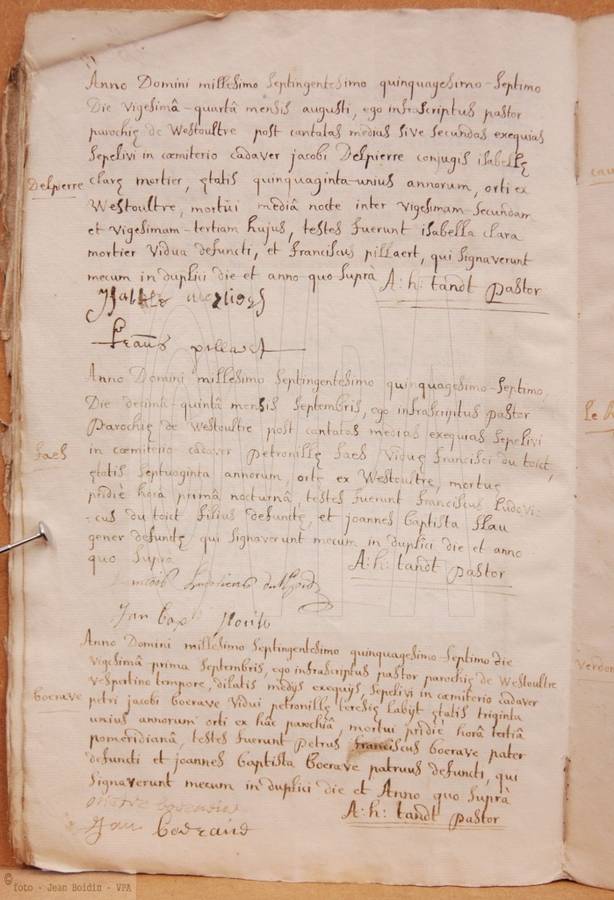 Anno Domini millesimo septingentesimo quinquagesimo-septimo
Die vigesimâ-quartâ mensis augusti, ego infrascriptus pastor
parochię de Westoultre post cantatas medias sive secundas exequias
sepelivi in cœmiterio cadaver jacobi Delpierre conjugis isabellę
Delpierre
clarę mortier, ętatis quinquaginta-unius annorum, orti ex
Westoultre, mortui mediâ nocte inter vigesimam-secundam
et vigesimam-tertiam hujus, testes fuerunt isabella clara
mortier vidua defuncti, et franciscus pillaert, qui signaverunt
mecum in duplici die et anno quo suprà
A: h: tandt pastor
pillaert
Anno Domini millesimo septingentesimo quinquagesimo-septimo,
Die decima-quintâ mensis septembris, ego infrascriptus pastor
parochię de Westoultre post cantatas medias exequias sepelivi
faes
in cœmiterio cadaver petronillę faes viduę francisci du toict,
ętatis septuaginta annorum, ortę ex Westoultre, mortuę
pridiè horâ primâ nocturnâ, testes fuerunt franciscus ludovi-
-cus du toict filius defunctę, et joannes baptista flau
gener defunctę qui signaverunt mecum in duplici die et anno
quo supra
A: h: tandt pastor
Jan bap
Anno Domini millesimo septingentesimo quinquagesimo-septimo die
vigesimâ-prima septembris, ego infrascriptus pastor parochię de Westoultre
vespertino tempore, dilatis medys exequiis, sepelivi in cœmiterio cadaver
boerave
petri jacobi boerave vidui petronillę teresię labijt ętatis triginta
unius annorum orti ex hâc parochiâ, mortui pridiè horâ tertiâ
pomeridianâ, testes fuerunt petrus franciscus boerave pater
defuncti et joannes baptista boerave patruus defuncti, qui
signaverunt mecum in duplici die et Anno quo suprà
A: h: tandt pastor
Jan
verdon
© foto - Jean Boidin - VPA